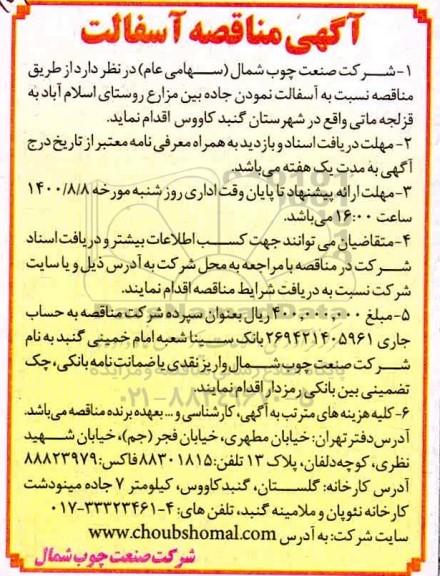 آگهی مناقصه آسفالت
۱- شرکت صنعت چوب شمال (سهامی عام) در نظر دارد از طریق
مناقصه نسبت به آسفالت نمودن جاده بین مزارع روستای اسلام آباد به
قزلجه ماتی واقع در شهرستان گنبد کاووس اقدام نماید.
۲- مهلت دریافت اسناد و بازدید به همراه معرفی نامه معتبر از تاریخ درج
آگهی به مدت یک هفته می‌باشد.
۳- مهلت ارائه پیشنهاد تا پایان وقت اداری روز شنبه مورخه ۱۴۰۰/۸/۸
ساعت ۱۶:۰۰ می‌باشد.
۴- متقاضیان می توانند جهت کسب اطلاعات بیشتر و دریافت اسناد
شرکت در مناقصه با مراجعه به محل شرکت به آدرس ذیل و یا سایت
شرکت نسبت به دریافت شرایط مناقصه اقدام نمایند.
۵- مبلغ ۴۰۰,۰۰۰,۰۰۰ ریال بعنوان سپرده شرکت مناقصه به حساب
جاری ۲۶۹۴۲۱۴۰۵۹۶۱ بانک سینا شعبه امام خمینی گنبد به نام
شرکت صنعت چوب شمال واریز نقدی یا ضمانت نامه بانکی، چک
تضمینی بین بانکی رمزدار اقدام نمایند.
۶- کلیه هزینه های مترتب به آگهی، کارشناسی و ... بعهده برنده مناقصه می‌باشد.
آدرس دفتر تهران: خیابان مطهری، خیابان فجر (جم)، خیابان شهید
نظری، کوچه دلفان، پلاک ۱۳ تلفن: ۸۸۳۰۱۸۱۵ فاکس: ۸۸۸۲۳۹۷۹
آدرس کارخانه: گلستان، گنبد کاووس، کیلومتر ۷ جاده مینودشت
کارخانه نئوپان و ملامینه گنبد، تلفن های: ۴-۳۳۳۲۳۴۶۱-۰۱۷
سایت شرکت: به آدرس www.choubshomal.com
شرکت صنعت چوب شمال